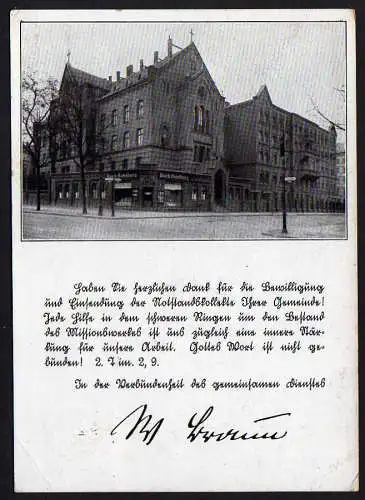 Buch-Handlung
Buch-Handlung
Haben Sie herzlichen Dank für die Bewilligung
und Einsendung der Notstandskollekte Ihrer Gemeinde!
Jede Hilfe in dem schweren Ringen um den Bestand
des Missionswerkes ist uns zugleich eine innere Stär-
kung für unsere Arbeit. Gottes Wort ist nicht ge-
bunden! 2. Tim. 2, 9.
In der Verbundenheit des gemeinsamen Dienstes
W Braun